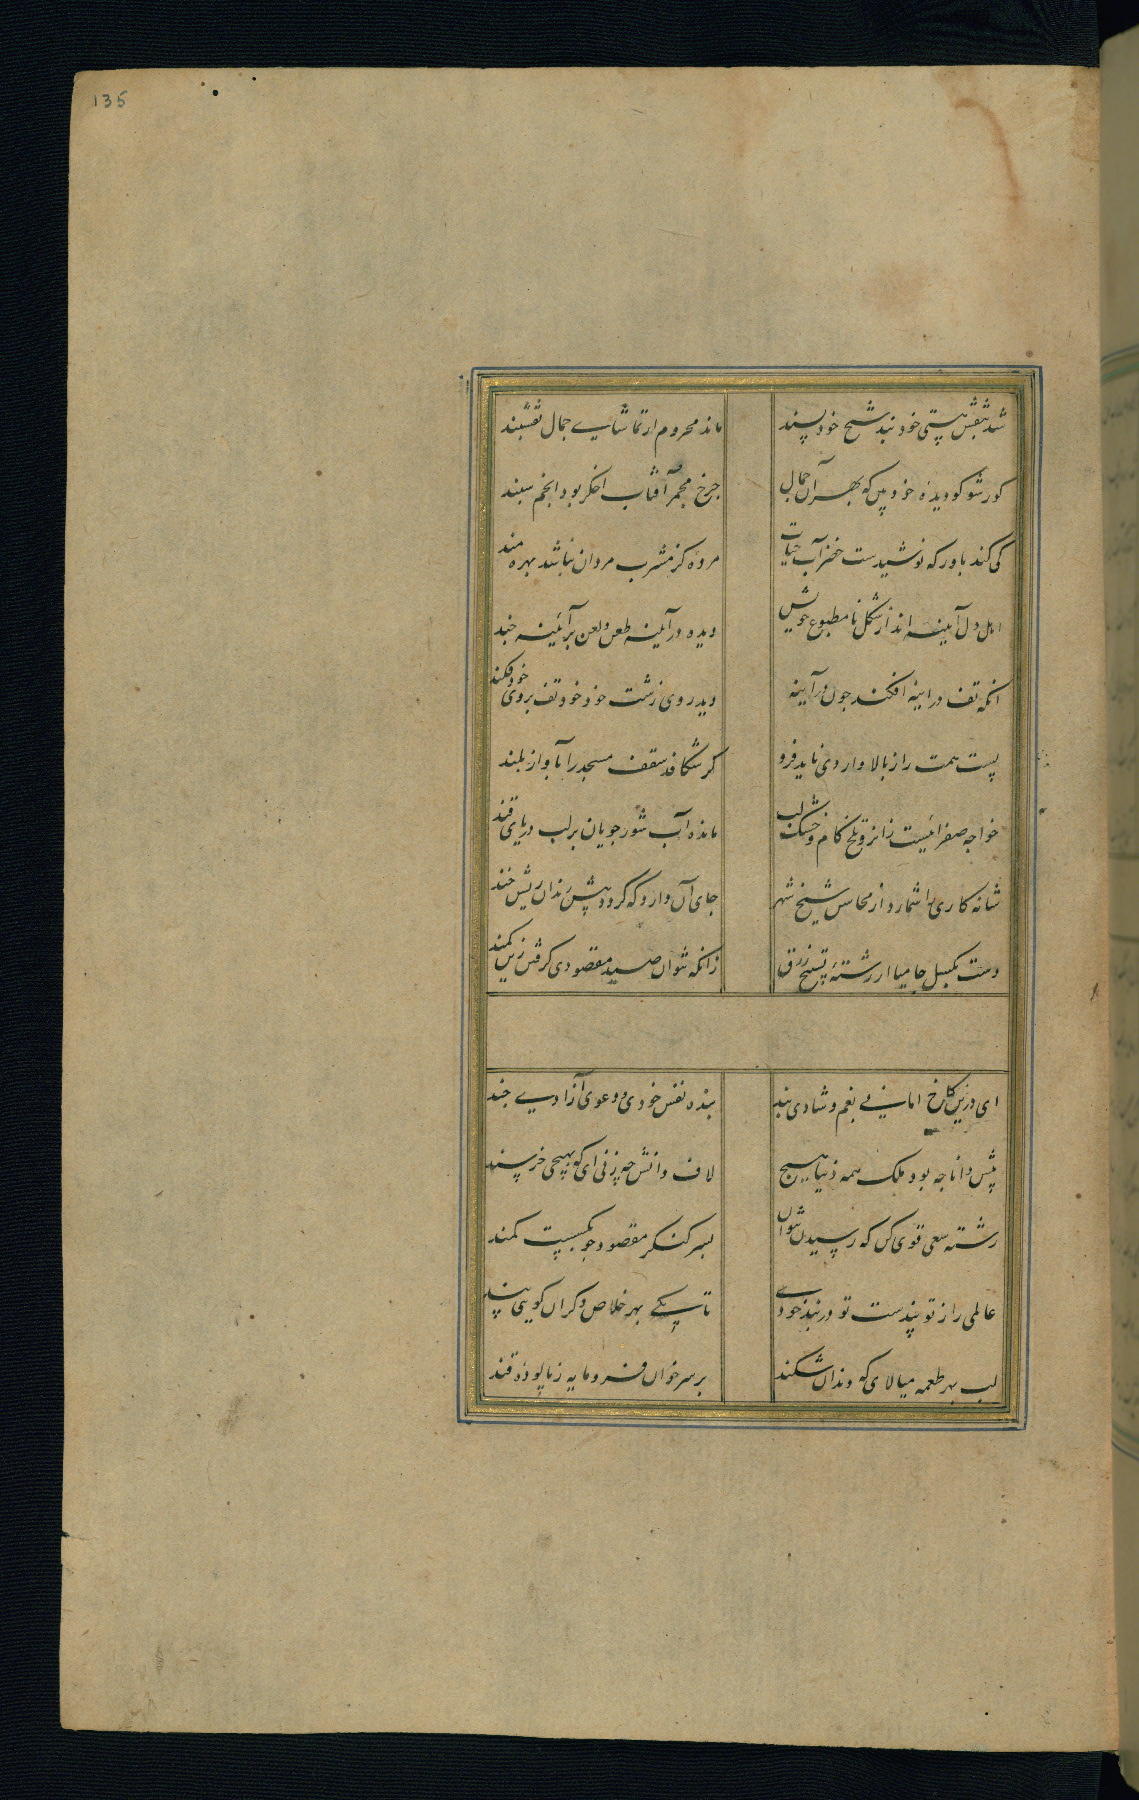 135
شد بنقش هستی خود بند شیخ خودپسند
ماند محروم از تماشای جمال نقشبند
کور شو کو دیده خودبین که بهر آن جمال
چرخ مجمر آفتاب اخگر بود انجم سپند
کی کند باور که نوشیدست خضر آب حیات
مرده کز مشرب مردان نباشد بهره مند
اهل دل آیینه اند از شکل نامطبوع خویش
دیده در آیینه طعن و لعن بر آئینه چند
آنکه تف در آینه افکند چون در آینه
دید روی زشت خود خود تف بروی خود فکند
پست همت را ز بالا واردی ناید فرو
گر شکافد سقف مسجد را بآواز بلند
خواجه صفرائیست زانرو تلخ کام و خشک لب
مانده آب شور جویان بر لب دریای قند
شانه کاری را شمارد از محاسن شیخ شهر
جای آن دارد که گردد پیش رندان ریش خند
دست بگسل جامیا از رشته تسبیح زرق
زانکه نتوان صید مقصودی گرفتن زین کمند
ای درین کاخ امانی بغم و شادی بند
بنده نفس خودی دعوی آزادی چند
پیش دانا چه بود ملک همه دنیا هیچ
لاف دانش چه زنی ای که بهیچی خرسند
رشته سعی قوی کن که رسیدن نتوان
بسر کنگر مقصود چو بگسیست کمند
عالمی را ز تو پندست تو در بند خودی
تا یکی بهر خلاص دگران گویی پند
لب بهر طعمه میالای که دندان شکند
بر سر خوان فرومایه ز پالوده قند